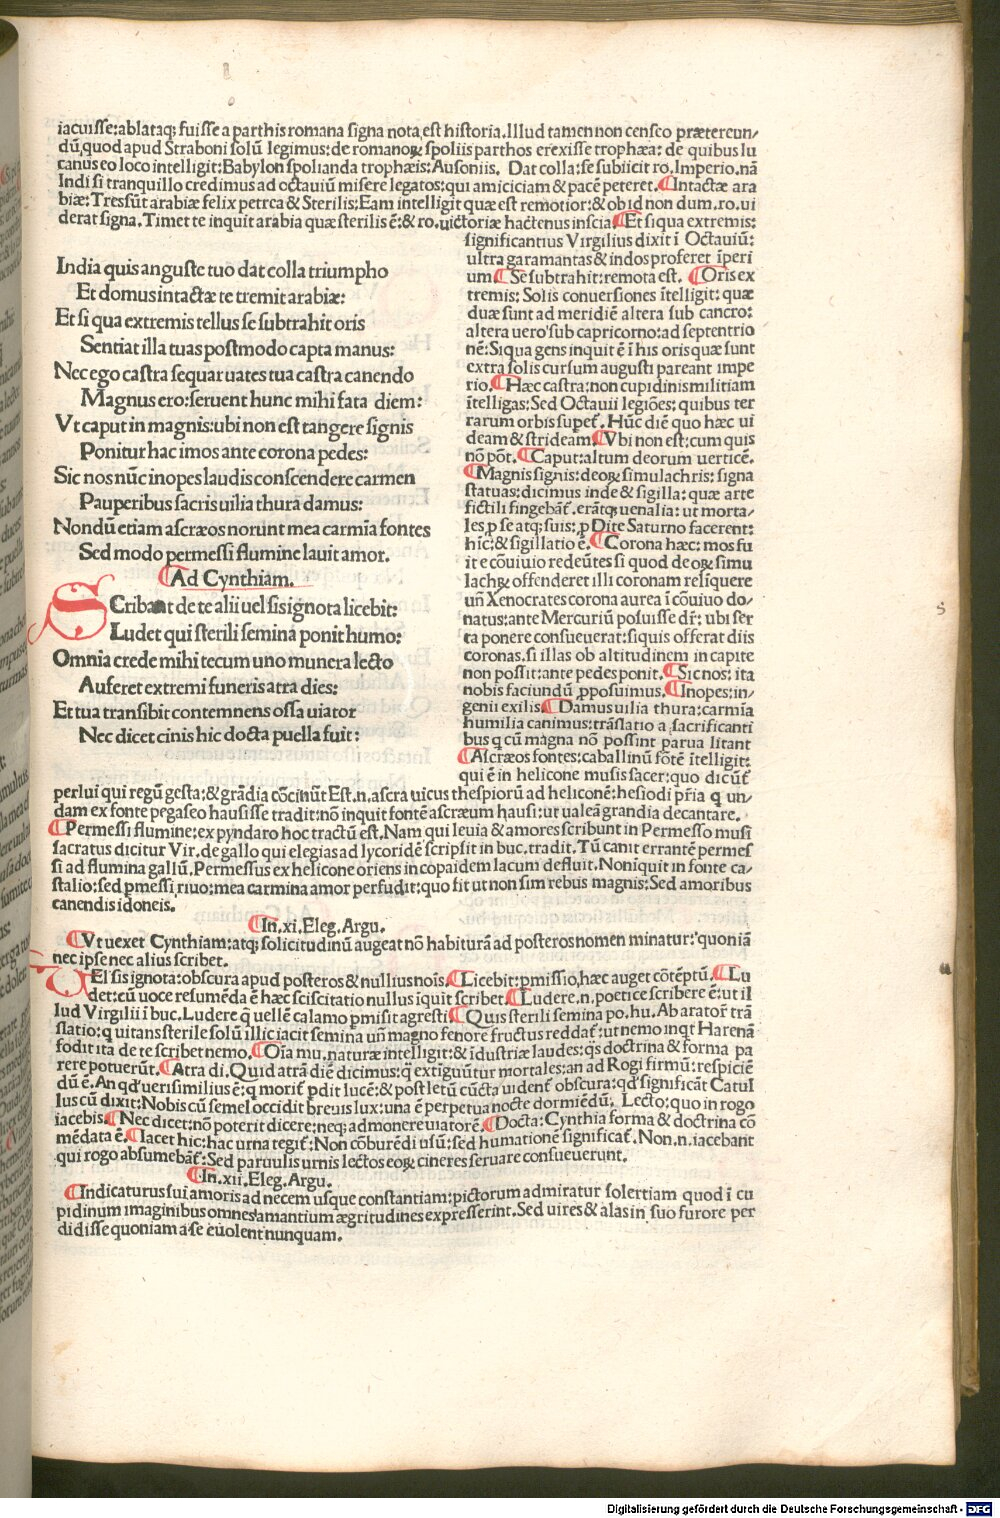 iacuisse:ablataq; fuisse a parthis romana signa nota est historia. Illud tamen non censeo prætereun/
dū, quod apud Straboni solū legimus: de romanoꝝ spoliis parthos erexisse trophæa: de quibus lu
canus eo loco intelligit: Babylon spolianda trophæis: Ausoniis. Dat colla: se subiicit ro. Imperio. nā
Indi si tranquillo credimus ad octauiū misere legatos: qui amiciciam & pacē peteret. ¶Intactæ ara
biæ: Tres sūt arabiæ felix petrea & Sterilis: Eam intelligit quæ est remotior: & ob id non dum. ro. ui
derat signa. Timet te inquit arabia quæ sterilis ē: & ro. uictoriæ hactenus inscia. ¶Et si qua extremis:
significantius Virgilius dixit ī Octauiū:
ultra garamantas & indos proferet īperi
um ¶Se subtrahit: remota est. ¶Oris ex
tremis: Solis conuersiones ītelligit: quæ
duæ sunt ad meridiē altera sub cancro:
altera uero sub capricorno: ad septentrio
nē: Si qua gens inquit ē ī his oris quæ sunt
extra solis cursum augusti pareant impe
rio. ¶Hæc castra: non cupidinis militiam
ītelligas: Sed Octauii legiōes: quibus ter
rarum orbis supet̄. Hūc diē quo hæc ui
deam & stri deam ¶Vbi non est: cum quis
nō pōt. ¶Caput: altum deorum uerticē.
¶Magnis signis: deoꝝ simulachris: signa
statuas: dicimus inde & sigilla: quæ arte
fictili fingebāt. erātq; uenalia: ut morta/
les p se atq; suis: p Dite Saturno facerent:
hīc: & sigillatio ē. ¶Corona hæc: mos fu
it e cōuiuio redeūtes si quod deoꝝ simu
lachꝝ offenderet illi coronam relīquere
un̄ Xenocrates corona aurea ī cōuiuo do/
natus: ante Mercuriū posuisse dr̄: ubi ser
ta ponere consueuerat: siquis offerat diis
coronas. si illas ob altitudinem in capite
non possit: ante pedes ponit. ¶Sic nos: ita
nobis faciundū pposuimus. ¶Inopes: in/
genii exilis. ¶Damus uilia thura: carmīa
humilia canimus: trāslatio a sacrificanti
bus q cū magna nō possint parua litant
¶Ascræos fontes: caballinū fōtē ītelligit:
qui ē in helicone musis sacer: quo dicūt̄
India quis anguste tuo dat colla triumpho
Et domus intactæ te tremit arabiæ:
Et si qua extremis tellus se subtrahit oris
Sentiat illa tuas postmodo capta manus:
Nec ego castra sequar uates tua castra canendo
Magnus ero: seruent hunc mihi fata diem:
Vt caput in magnis: ubi non est tangere signis
Ponitur hac imos ante corona pedes:
Sic nos nūc inopes laudis conscendere carmen
Pauperibus sacris uilia thura damus:
Nondū etiam ascræos norunt mea carmīa fontes
Sed modo permessi flumine lauit amor.
¶Ad Cynthiam.
SCribant de te alii uel sis ignota licebit:
Ludet qui sterili semina ponit humo:
Omnia crede mihi tecum uno munera lecto
Auferet extremi funeris atra dies:
Et tua transibit contemnens ossa uiator
Nec dicet cinis hic docta puella fuit:
perlui qui regū gesta: & grādia cōcinūt Est. n. ascra uicus thespiorū ad heliconē: hesiodi pr̄ia q un/
dam ex fonte pegaseo hausisse tradit: nō inquit fontē ascræum hausi: ut ualeā grandia decantare.
¶Permessi flumine: ex pyndaro hoc tractū est. Nam qui leuia & amores scribunt in Permesso musi
sacratus dicitur Vir. de gallo qui elegias ad lycoridē scripsit in buc. tradit. Tū canit errantē permes
si ad flumina gallū. Permessus ex helicone oriens in copaidem lacum defluit. Non iquit in fonte ca/
stalio: sed pmessi riuo: mea carmina amor perfudit: quo fit ut non sim rebus magnis: Sed amoribus
canendis idoneis.
¶In. xi. Eleg. Argu.
¶Vt uexet Cynthiam: atq; solicitudinū augeat nō habiturā ad posteros nomen minatur: quoniā
nec ipse nec alius scribet.
VEl sis ignota: obscura apud posteros & nullius noīs. ¶Licebit: pmissio, hæc auget cōtēptū. ¶Lu
det: cū uoce resumēda ē hæc sciscitatio nullus īquit scribet. ¶Ludere. n. poetice scribere ē: ut il
lud Virgilii ī buc. Ludere q̄ uellē calamo pmisit agresti ¶Quis sterili semina po. hu. Ab arator̄ trā
slatio: q uitans sterile solū illic iacit semina un̄ magno fenore fructus reddat̄: ut nemo inqt Harenā
fodit ita de te scribet nemo. ¶Oīa mu. naturæ intelligit: & īdustriæ laudes: qs doctrina & forma pa
rere potuerūt. ¶Atra di. Quid atrā diē dicimus: q̄ extiguūtur mortales: an ad Rogi firmū: respiciē
dū ē. An qd' uerisimilius ē: q̄ morit̄ pdit lucē: & post letū cūcta uident̄ obscura: qd' significāt Catul
lus cū dixit: Nobis cū semel occidit breuis lux: una ē perpetua nocte dormiēdū. Lecto: quo in rogo
iacebis. ¶Nec dicet: nō poterit dicere: neq; admonere uiatorē. ¶Docta: Cynthia forma & doctrina cō
mēdata ē. ¶Iacet hic: hac urna tegit̄: Non cōburēdi usū: sed humationē significat̄. Non. n. iacebant
qui rogo absumebāt̄: Sed paruulis urnis lectos eoꝝ cineres seruare consueuerunt.
¶In. xii. Eleg. Argu.
¶Indicaturus sui amoris ad necem usque constantiam: pictorum admiratur solertiam quod ī cu
pidinum imaginibus omnes amantium ægritudines expresserint. Sed uires & alas in suo furore per
didisse quoniam a se euolent nunquam.
Digitalisierung gefördert durch die Deutsche Forschungsgemeinschaft - DFG